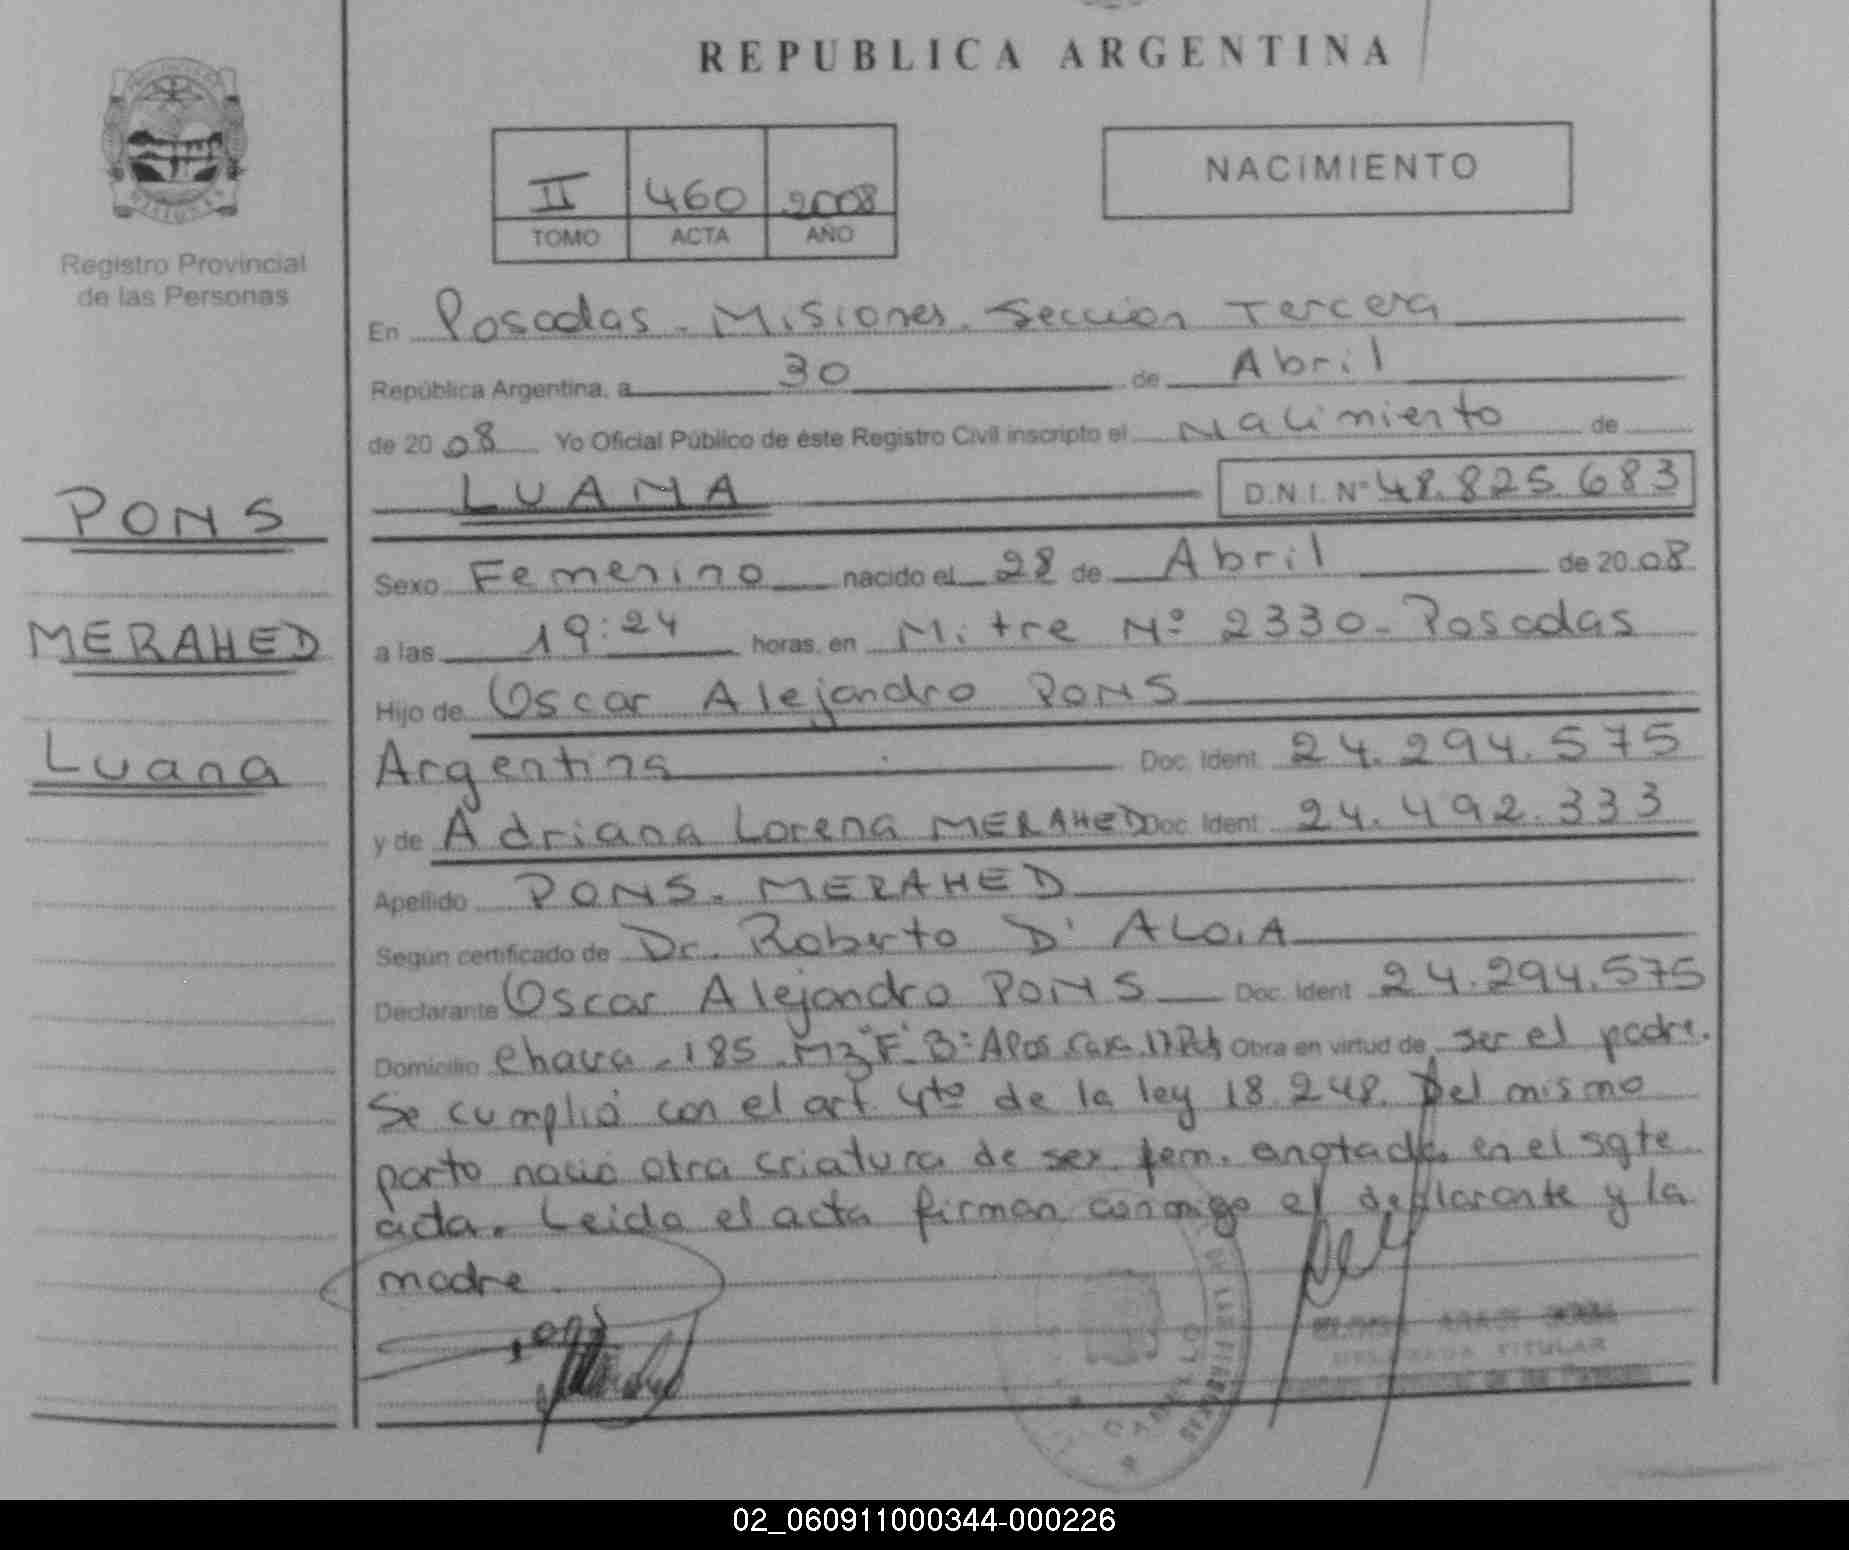 REPUBLICA ARGENTINA
NACIMIENTO
II 460 2008
TOMO ACTA AÑO
Registro Provincial
de las Personas
En Posadas - Misiones. Sección Tercera
República Argentina, a 30 de Abril
de 2008 Yo Oficial Público de éste Registro Civil inscripto el Nacimiento de
LUANA D.N.I. Nº 48.825.683
PONS
MERAHED
Luana
Sexo Femenino nacido el 28 de Abril de 2008
a las 19:24 horas, en Mitre Nº 2330 - Posadas
Hijo de Oscar Alejandro PONS
Argentina Doc. Ident. 24.294.575
y de Adriana Lorena MERAHED Doc. Ident. 24.492.333
Apellido PONS - MERAHED
Según certificado de Dr. Roberto D' ALOIA
Declarante Oscar Alejandro PONS Doc. Ident. 24.294.575
Domicilio chacra - 185 Mz "F" Bº Obra en virtud de ser el padre.
Se cumplió con el art. 4to de la ley 18.248. Del mismo
parto nació otra criatura de sex. fem. anotada en el sgte
acta. Leida el acta firman conmigo el declarante y la
madre
TITULAR
02_060911000344-000226